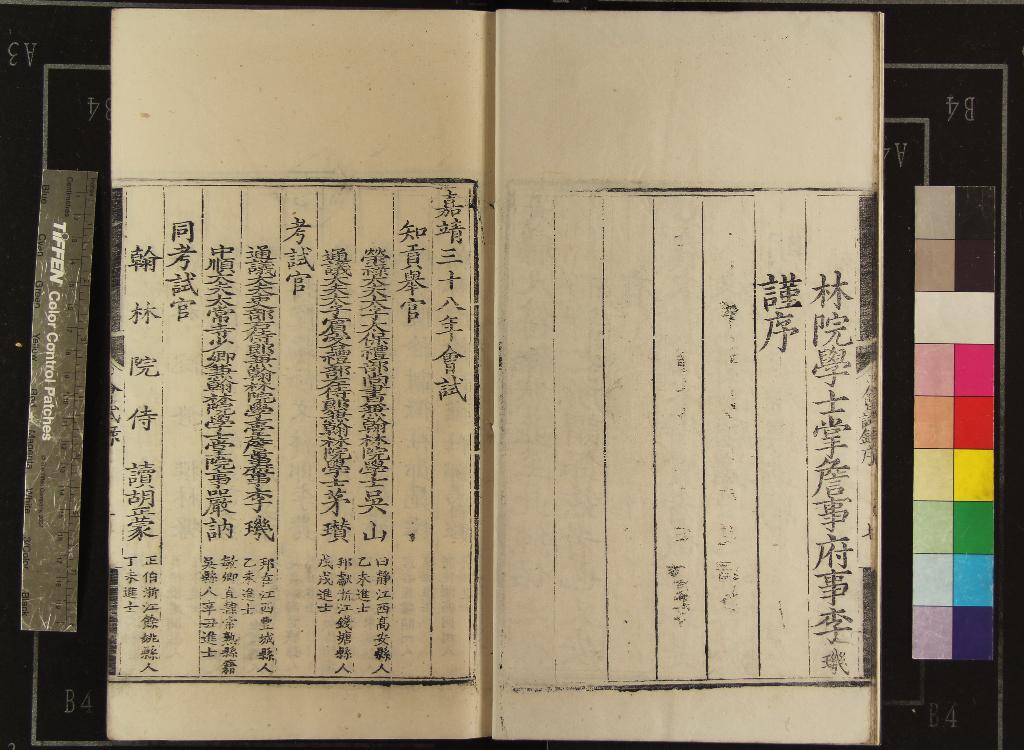 林院學士掌詹事府事李璣
謹序
嘉靖三十八年會試
知貢舉官
榮祿大夫太子太保禮部尚書兼翰林院學士吳山
曰靜江西高安縣人
乙未進士
通議大夫太子賓客禮部左侍郎兼翰林院學士茅瓚
邦獻浙江錢塘縣人
戊戌進士
考試官
通議大夫吏部左侍郎兼翰林院學士掌詹事府事李璣
邦在江西豐城縣人
乙未進士
中順大夫太常寺少卿兼翰林院學士掌院事嚴訥
敏卿直隸常熟縣籍
吳縣人辛丑進士
同考試官
翰林院侍讀胡正蒙
正伯浙江餘姚縣人
丁未進士
TIFFEN Color Control Patches
B4
B4
B4
B4
A3
A4